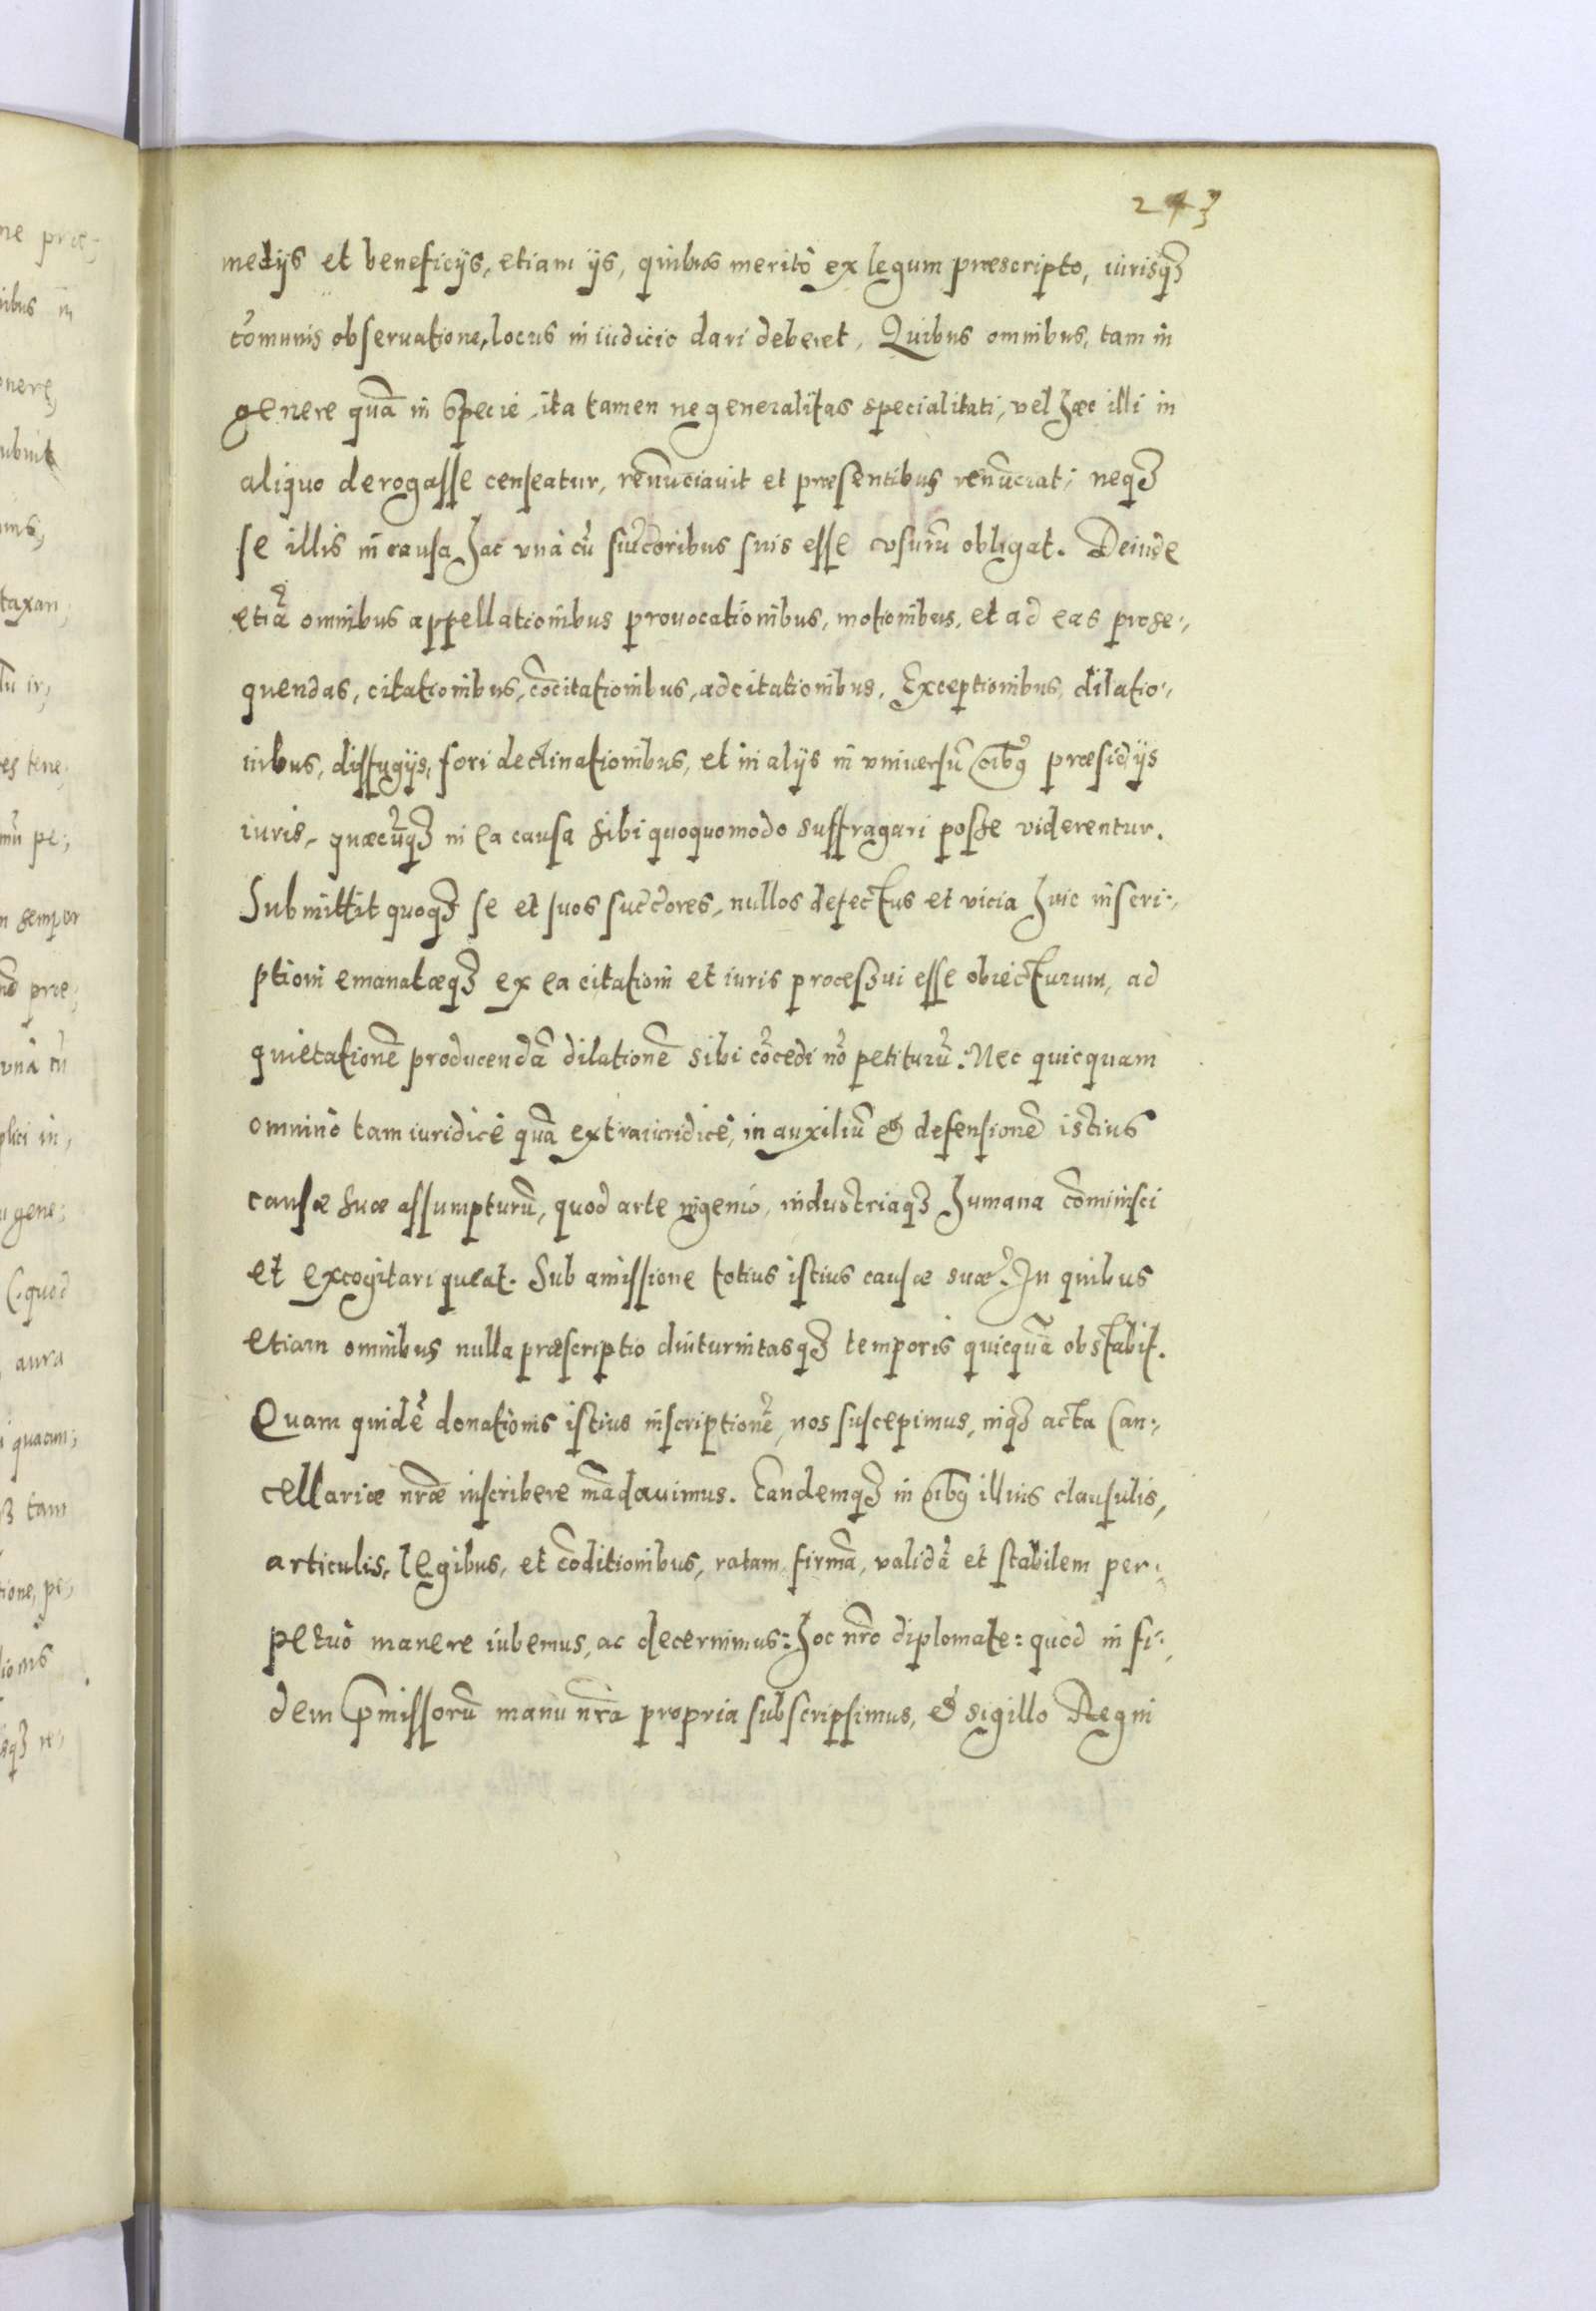 243
medijs et beneficijs, etiam ijs, quibus meritò ex legum præscripto, iurisq3
cōmunis obseruatione, locus in iudicio dari deberet, Quibus omnibus, tam in
genere quā in specie, ita tamen ne generalitas specialitati, vel hæc illi in
aliquo derogasse censeatur, renūciauit et præsentibus renūciat, neq3
se illis in causa hac vnà cū succoribus suis esse vsurū obligat. Deinde
etiā omnibus appellationibus prouocationibus, motionibus, et ad eas prose:,
quendas, citationibus, cōcitationibus, adcitationibus, Exceptionibus, dilatio:,
nibus, diffugijs, fori declinationibus, et in alijs in vniuersū oībꝰ præsidijs
iuris, quæcūq3 in ea causa sibi quoquomodo suffragari posse viderentur.
Submittit quoq3 se et suos succores, nullos defectus et vicia huic inscri:,
ptioni emanatæq3 ex ea citationi et iuris processui esse obiecturum, ad
quietationē producendā dilationē sibi cōcedi nō petiturū: Nec quicquam
omninò tam iuridicè quā extraiuridicè, in auxiliū & defensionē istius
causæ suæ assumpturū, quod arte ingenio, industriaq3 humana cōminisci
et excogitari queat. Sub amissione totius istius causæ suæ. In quibus
etiam omnibus nulla præscriptio diuturnitasq3 temporis quicquā obstabit.
Quam quidē donationis istius inscriptionē, nos suscepimus, inq3 acta Can:,
cellariæ nr̄æ inscribere mādauimus. Eandemq3 in oībꝰ illius clausulis,
articulis, legibus, et cōditionibus, ratam, firmā, validā et stabilem per:,
petuò manere iubemus, ac decernimus: hoc nr̄o diplomate: quod in fi:,
dem p̄missorū manu nr̄a propria subscripsimus, & sigillo Regni